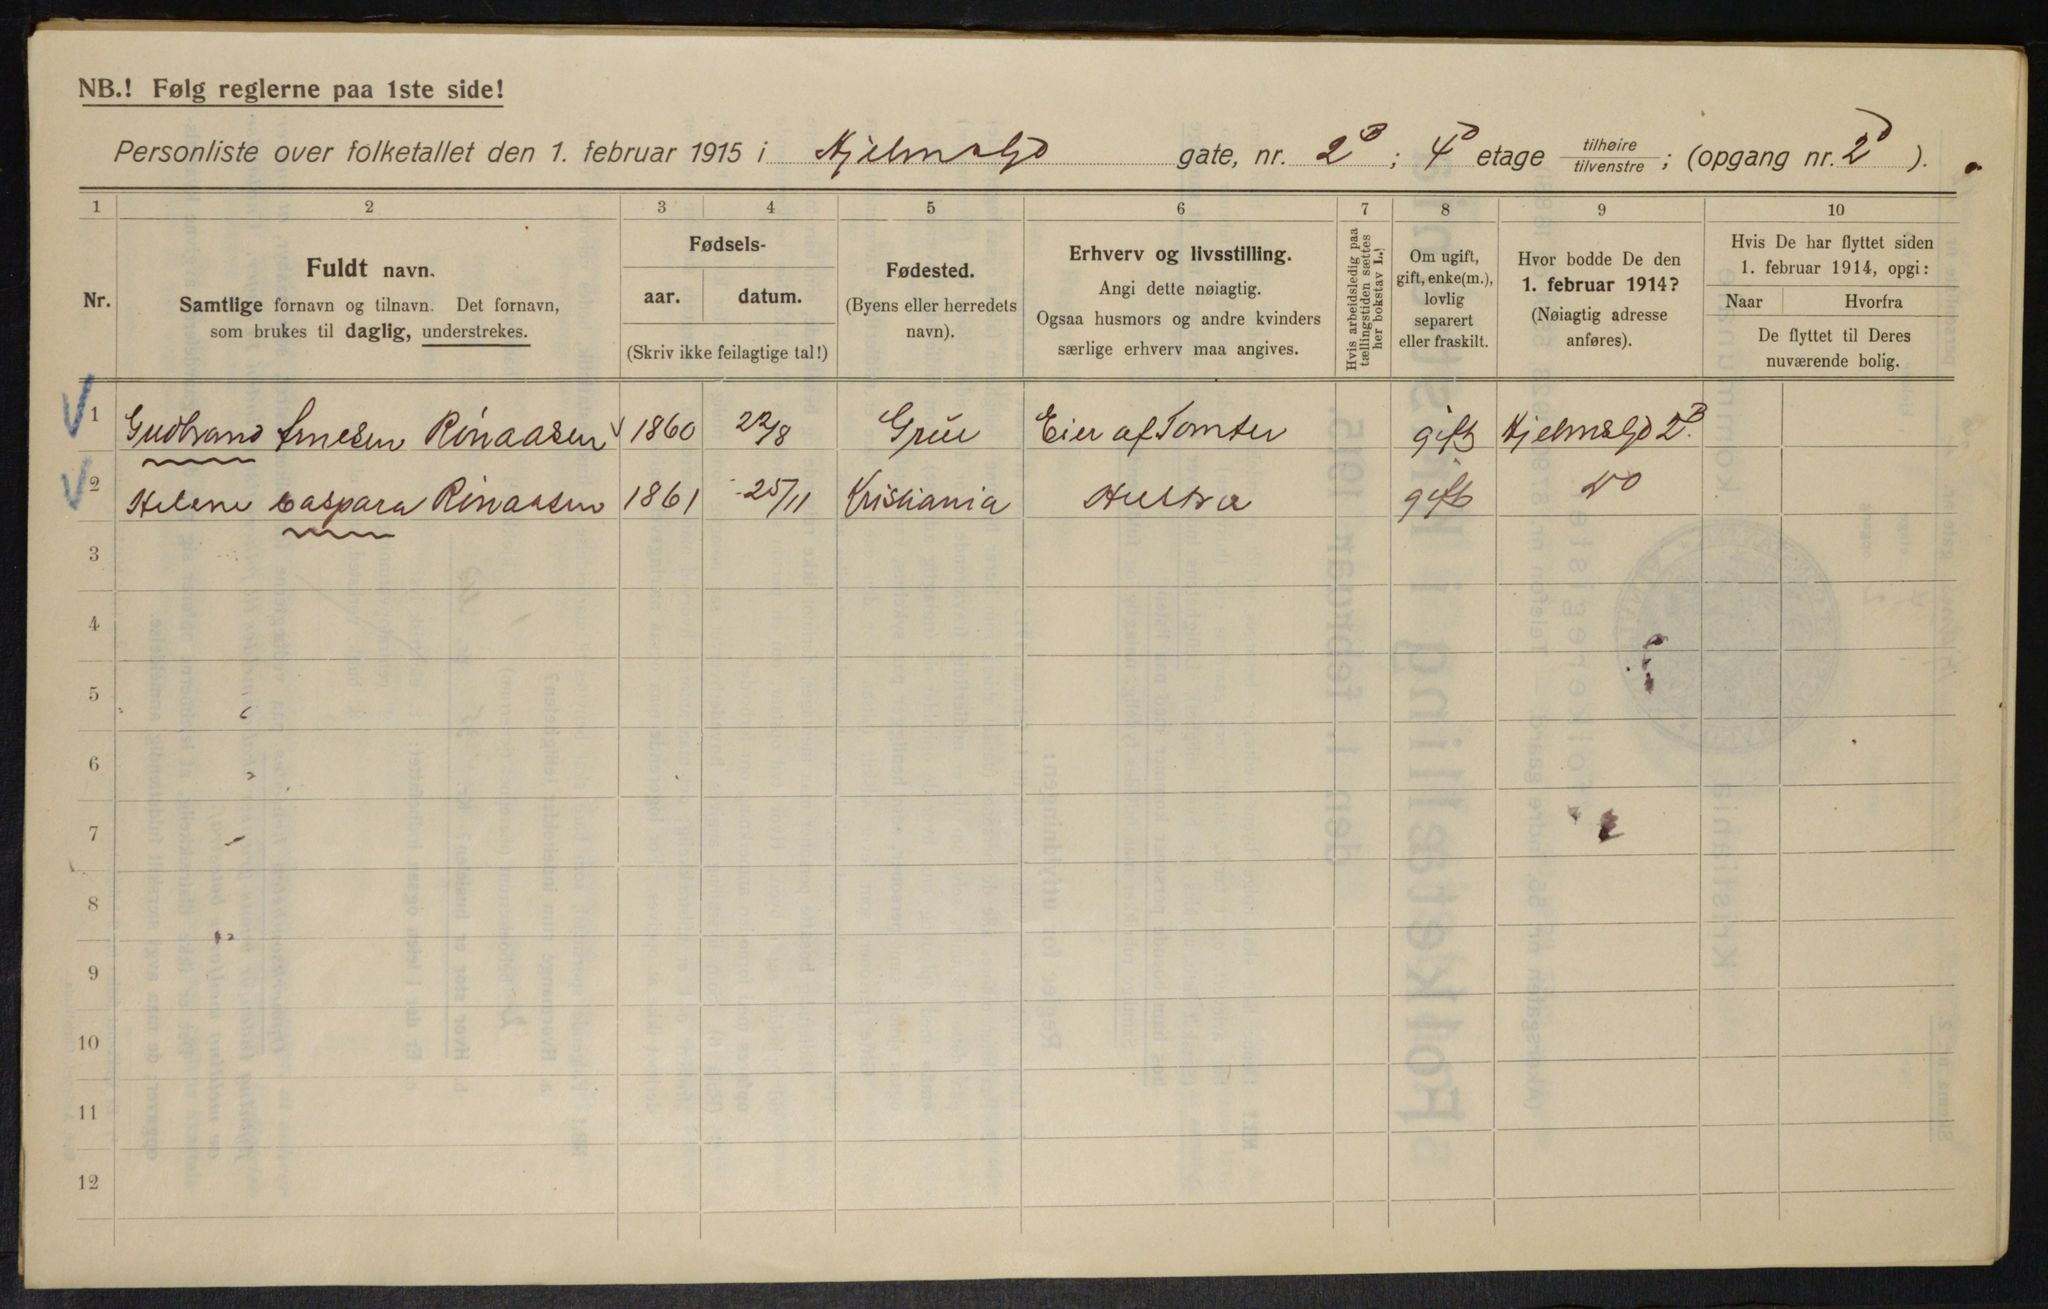 NB.! Følg reglerne paa 1ste side!
Personliste over folketallet den 1. februar 1915 i Hjelmsgd gate, nr. 2B; 4d etage tilhøire tilvenstre; (opgang nr. 2d).
1 2 3 4 5 6 7 8 9 10
Nr.
Fuldt navn.
Samtlige fornavn og tilnavn. Det fornavn,
som brukes til daglig, understrekes.
Fødsels-
aar. datum.
(Skriv ikke feilagtige tal!)
Fødested.
(Byens eller herredets
navn).
Erhverv og livsstilling.
Angi dette nøiagtig.
Ogsaa husmors og andre kvinders
særlige erhverv maa angives.
Hvis arbeidsledig paa
tællingstiden sættes
her bokstav L.!
Om ugift,
gift, enke(m.),
lovlig
separert
eller fraskilt.
Hvor bodde De den
1. februar 1914?
(Nøiagtig adresse
anføres).
Hvis De har flyttet siden
1. februar 1914, opgi:
Naar Hvorfra
De flyttet til Deres
nuværende bolig.
1 Gudbrand Arnesen Rönaasen 1860 22/8 Grue Eier af Tomter gift Hjelmsgd 2B.
2 Helene Caspara Rönaasen 1861 25/11 Kristiania Hustru gift do
3
4
5
6
7
8
9
10
11
12